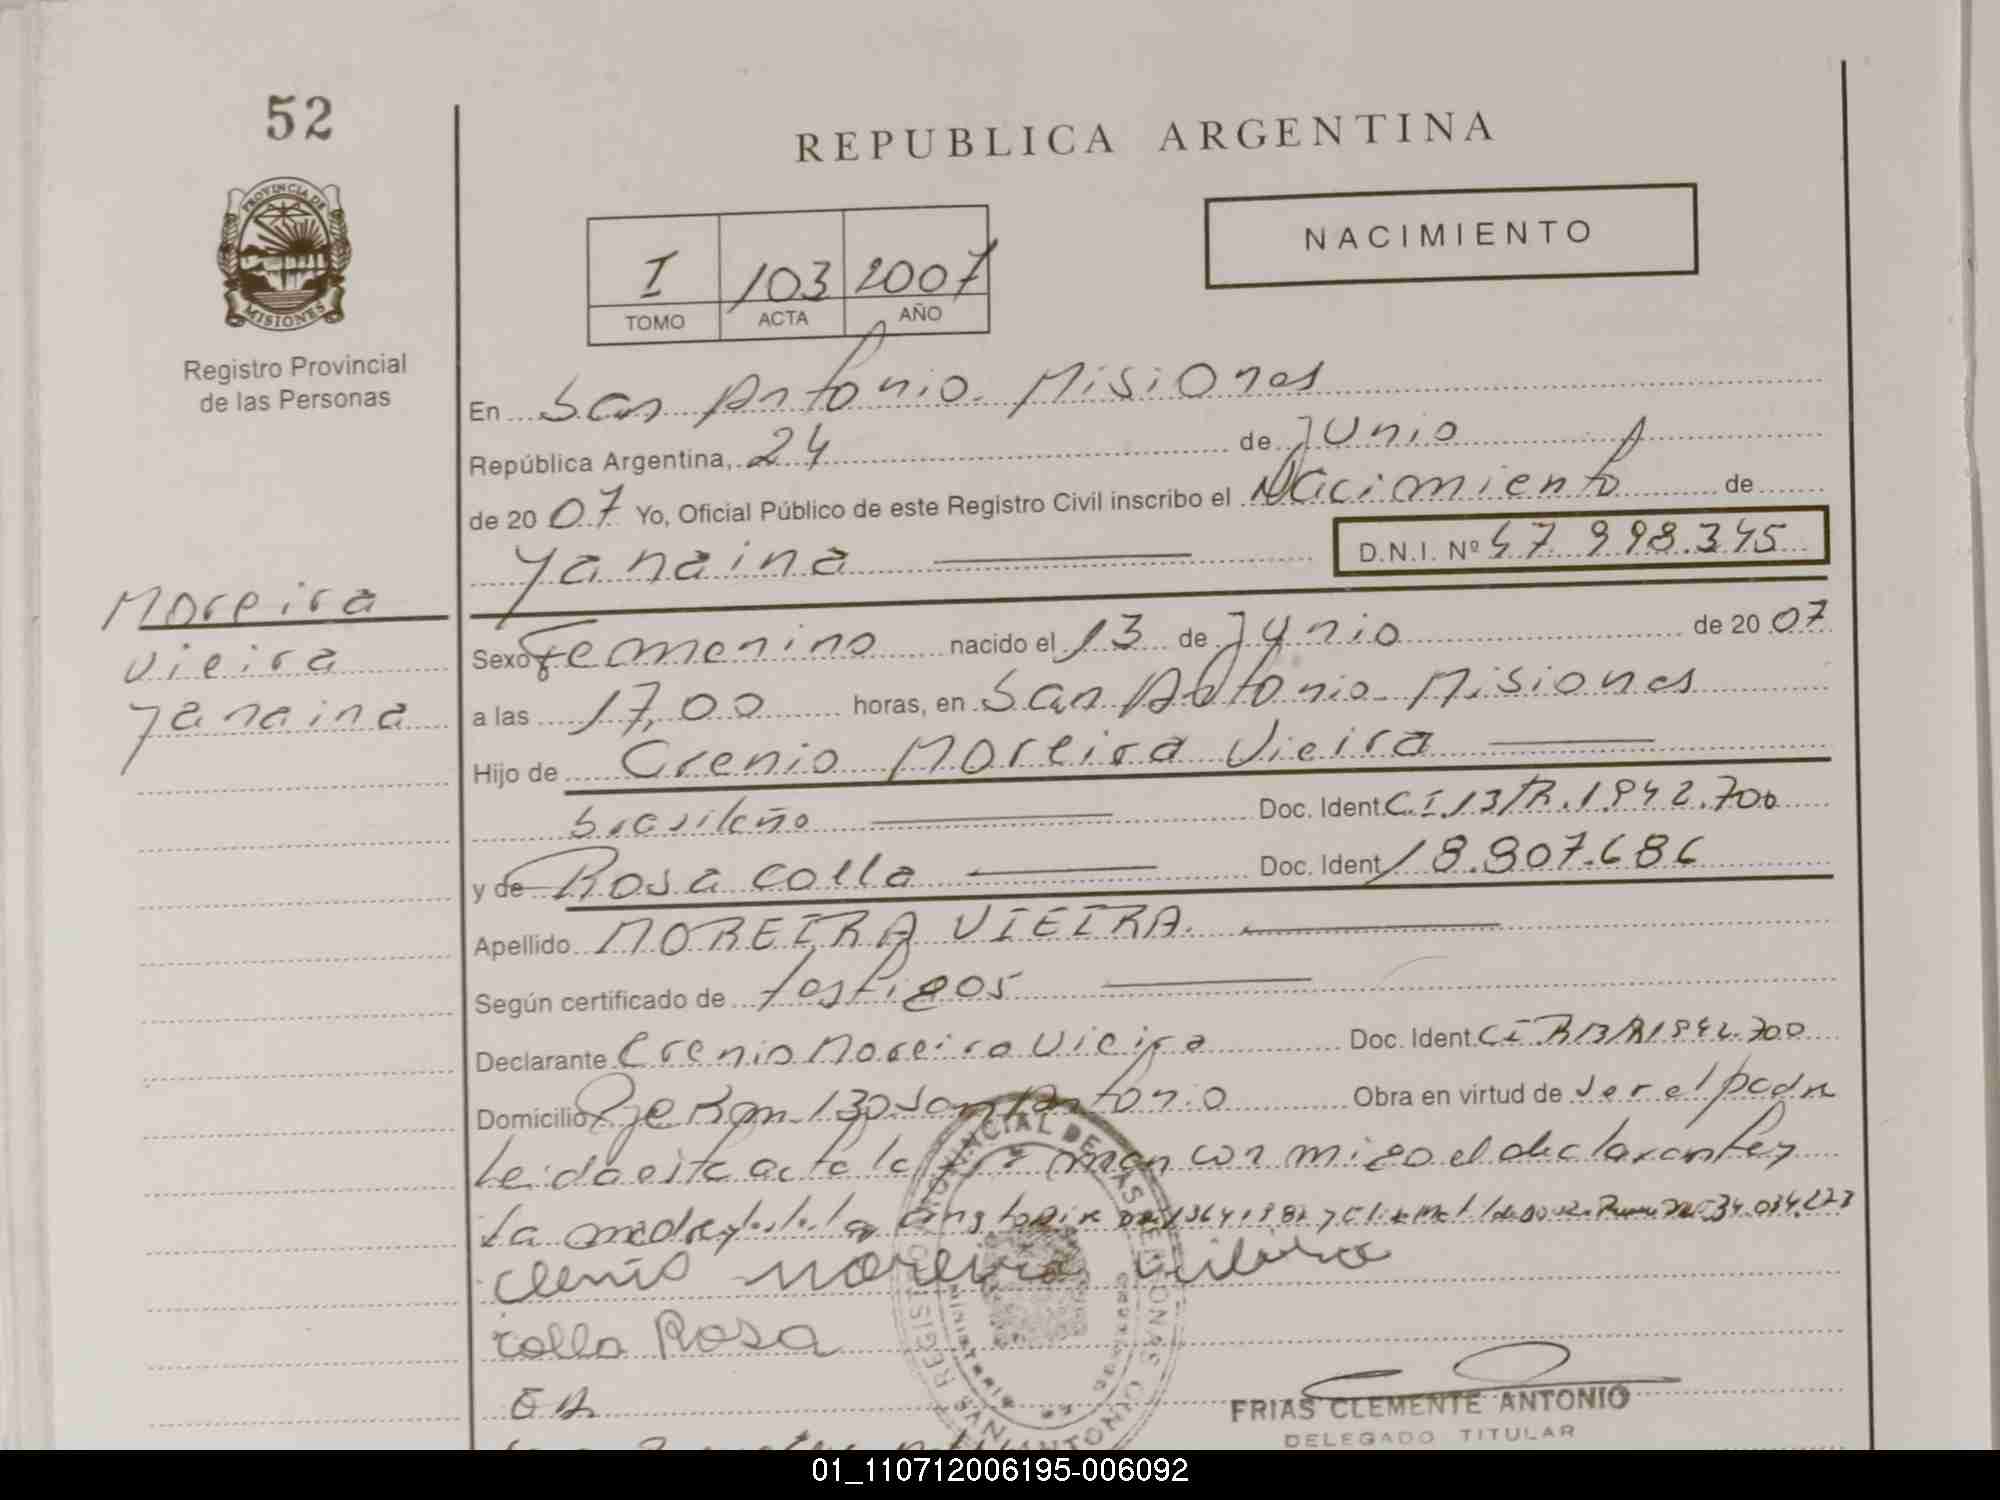 52
PROVINCIA DE
MISIONES
Registro Provincial
de las Personas
REPUBLICA ARGENTINA
NACIMIENTO
I 103 2007
TOMO ACTA AÑO
En San Antonio. Misiones
República Argentina, 24 de Junio
de 20 07 Yo, Oficial Público de este Registro Civil inscribo el Nacimiento de
Yanaina D.N.I. Nº 47 998.345
Moreira
Vieira
Yanaina
Sexo Femenino nacido el 13 de Junio de 20 07
a las 17,00 horas, en San Antonio Misiones
Hijo de Crenio Moreira Vieira
brasileño Doc. Ident. C.I.13/R.1.942.700
y de Rosa Colla Doc. Ident. 18.807.686
Apellido MOREIRA VIEIRA.
Según certificado de testigos
Declarante Crenio Moreira Vieira Doc. Ident. CI
Domicilio Pje Km. 130 San Antonio Obra en virtud de ser el padre
Leida esta acta la firman con migo el declarante y
la madre y 34.034.273
Clenio Moreira Vieira
Colla Rosa
FRIAS CLEMENTE ANTONIO
DELEGADO TITULAR
01_110712006195-006092